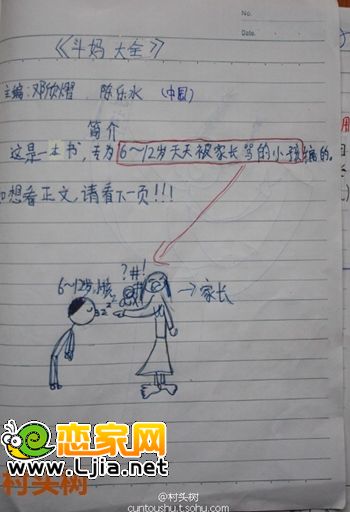 No.
Date.
《斗妈 大全》
主编:邓欣熠 陈乐水 (中国)
简介
这是一本书,专为6~12岁天天被家长骂的小孩编的。
想看正文,请看下一页!!!
?#!
6~12岁小孩
→家长
恋家网
www.Ljia.net
村头树
@村头树
cuntoushu.t.sohu.com